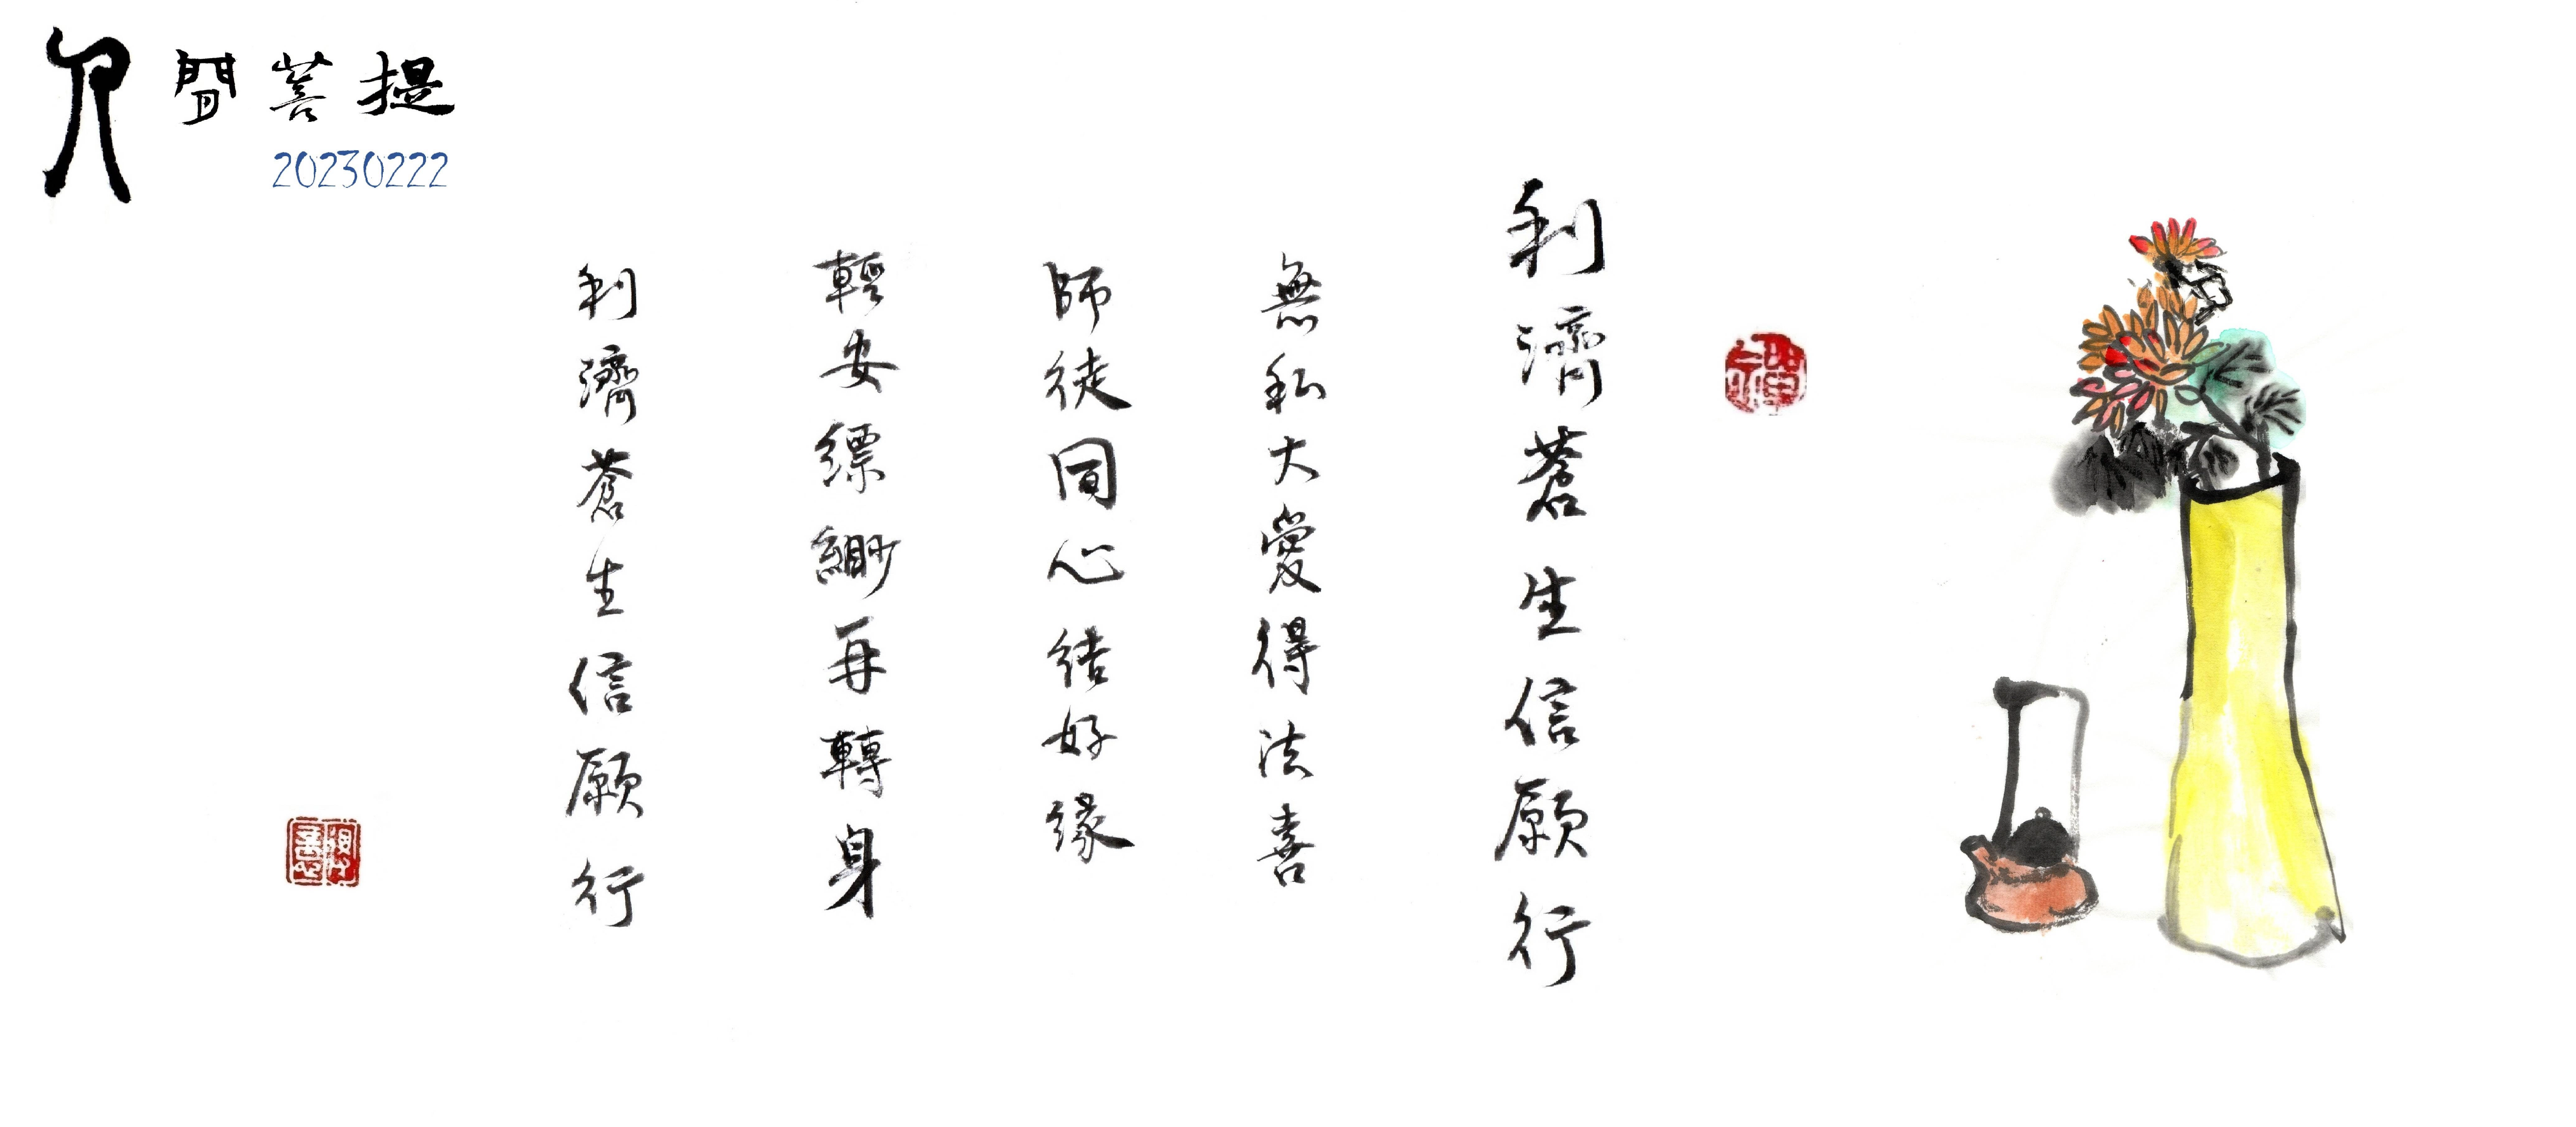 人間菩提
20230222
利濟蒼生信願行
禪
無私大愛得法喜
師徒同心結好緣
輕安縹緲再轉身
利濟蒼生信願行